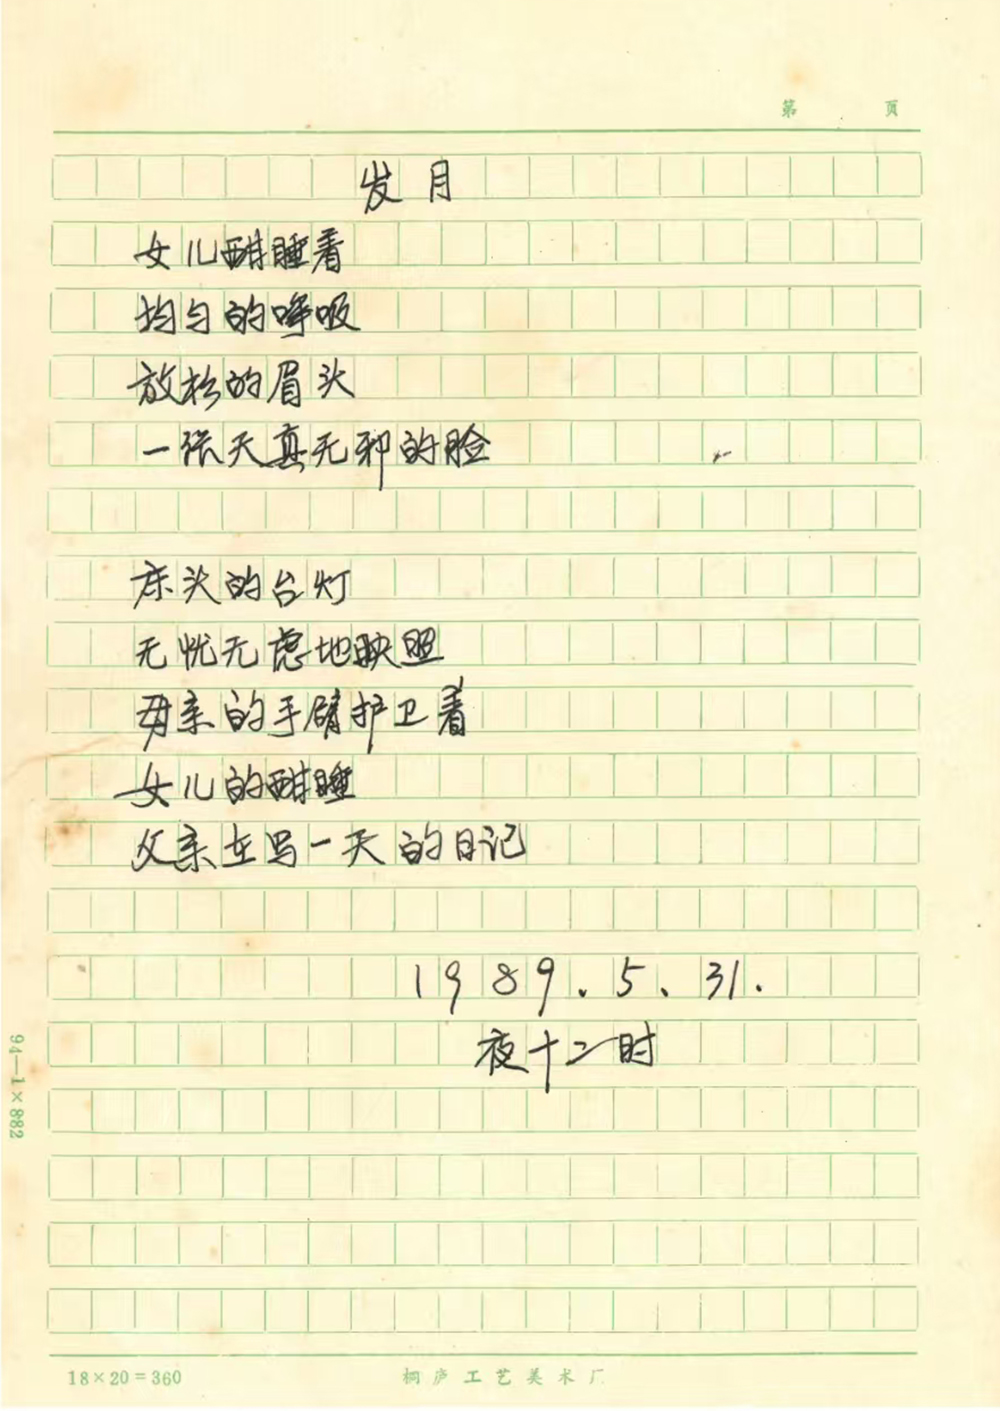 第 页
发月
女儿酣睡着
均匀的呼吸
放松的眉头
一张天真无邪的脸
床头的台灯
无忧无虑地映照
母亲的手臂护卫着
女儿的酣睡
父亲在写一天的日记
1989.5、31.
夜十二时
94—1×882
18×20=360
桐庐工艺美术厂